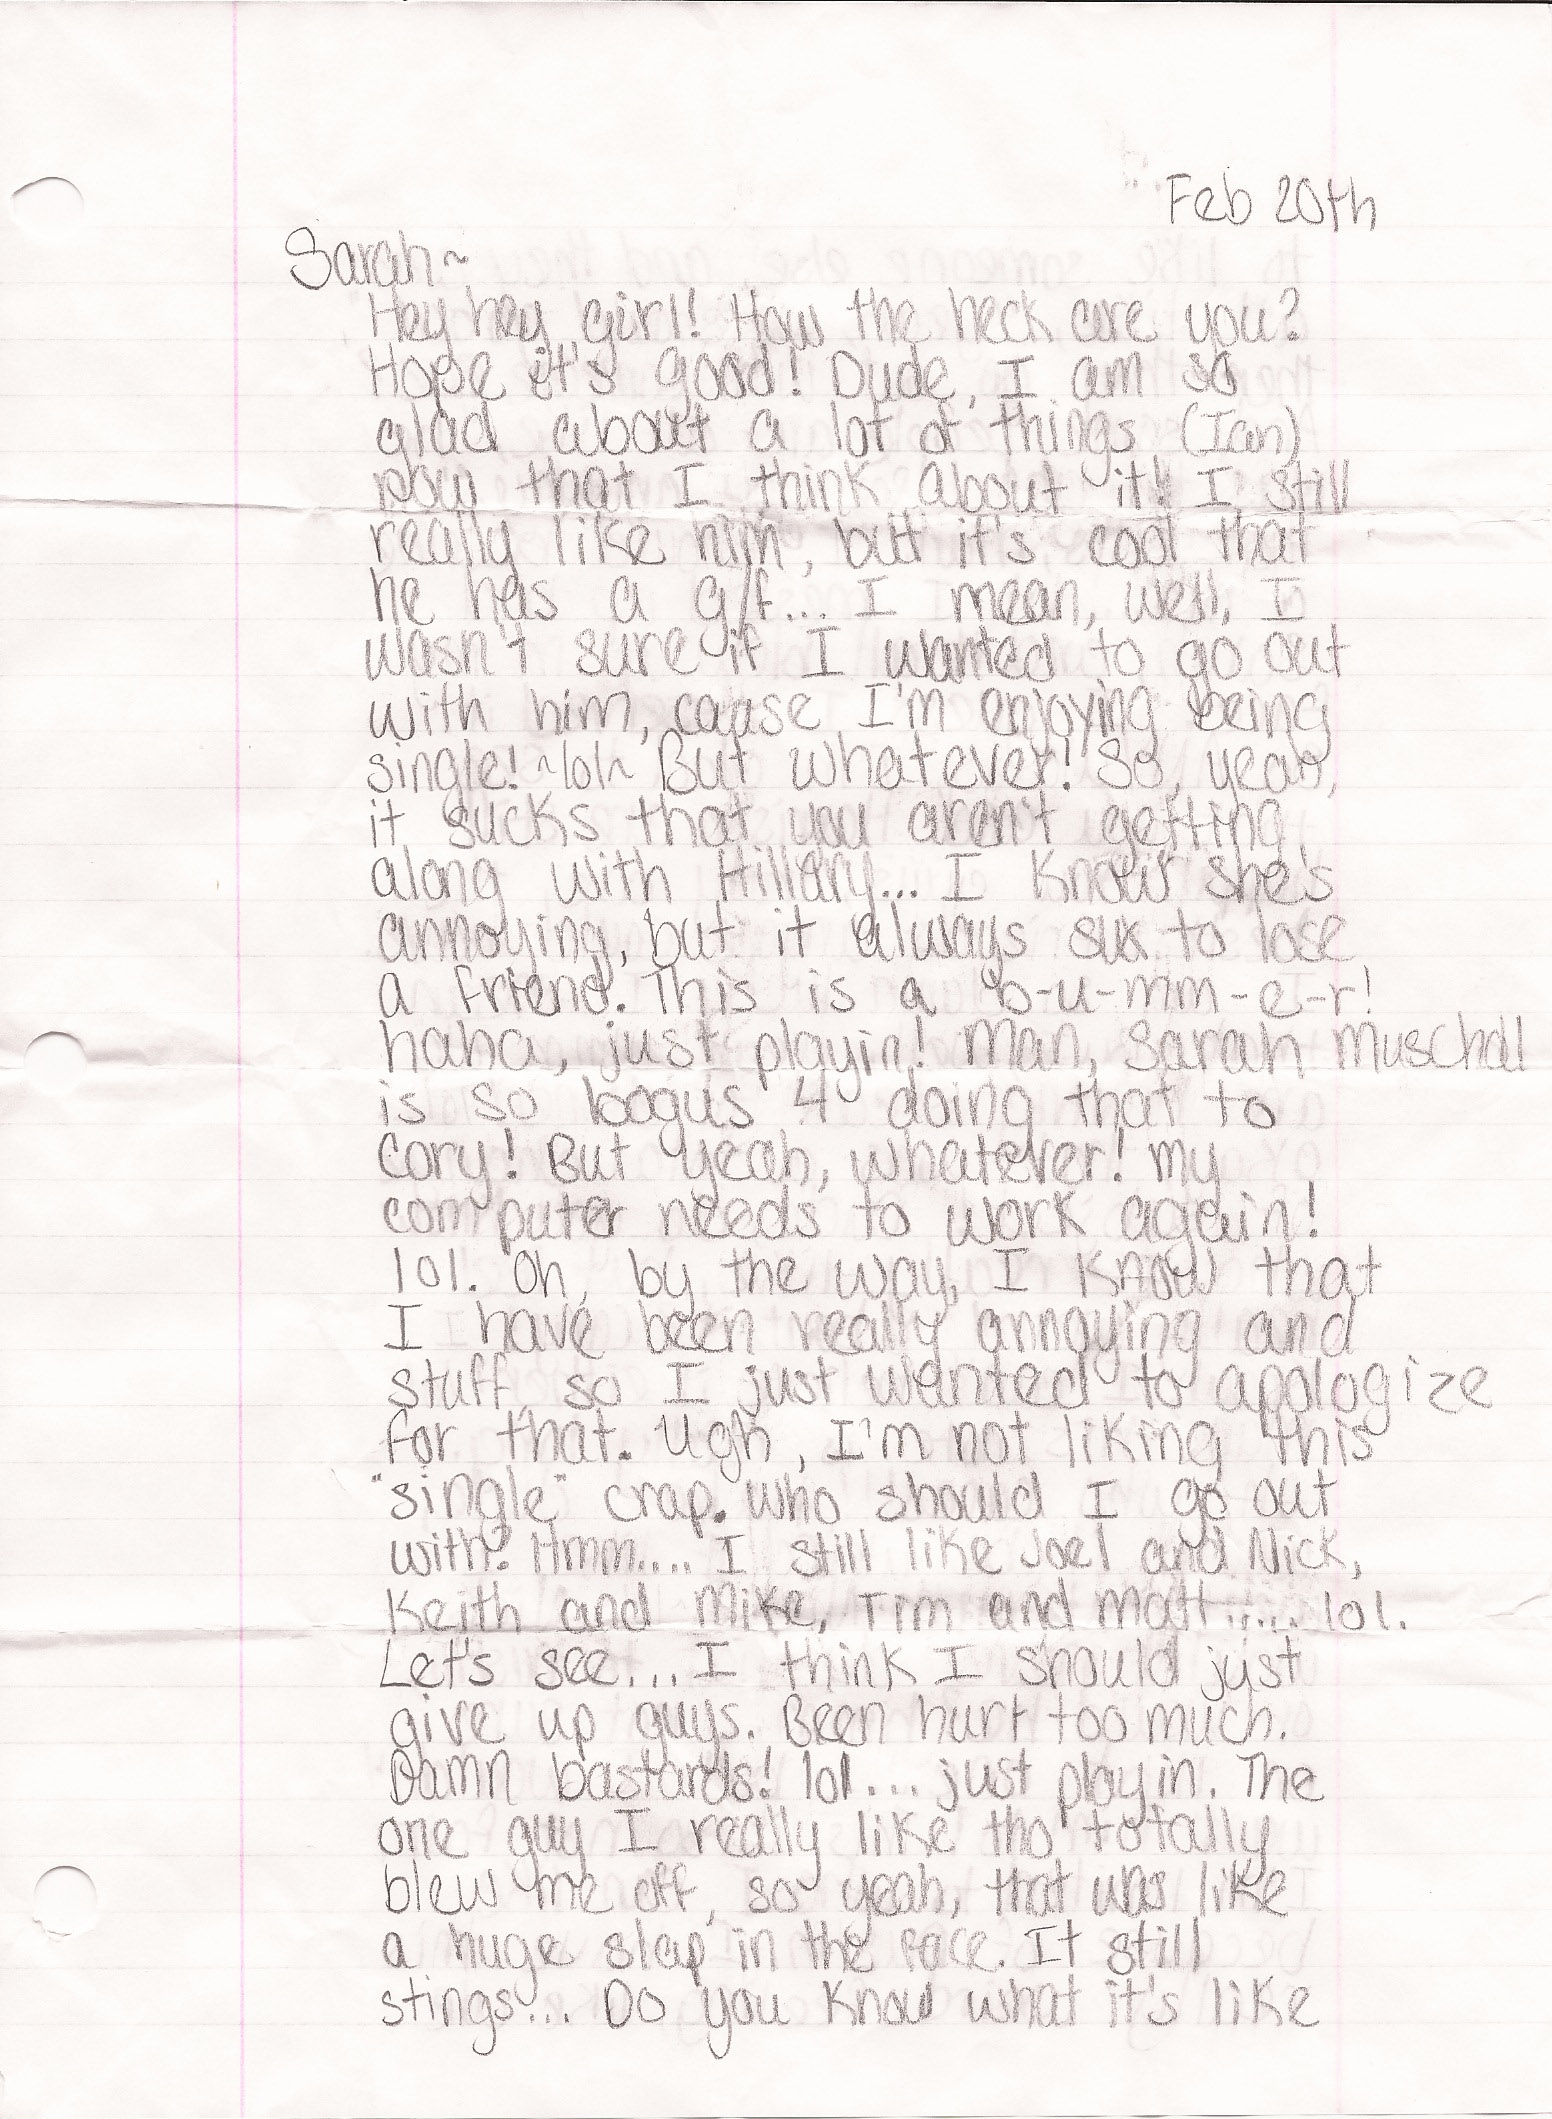 Feb 20th
Sarah~
Hey hey girl! How the heck are you?
Hope it's good! Dude, I am so
glad about a lot of things (Ian)
now that I think about it! I still
really like him, but it's cool that
he has a g/f... I mean, well, I
wasn't sure if I wanted to go out
with him, cause I'm enjoying being
single! ~lol~ But whatever! So, yeah,
it sucks that you aren't getting
along with Hillary... I know she's
annoying, but it always sux to lose
a friend. This is a b-u-mm-e-r!
haha, just playin! Man, Sarah
is so bogus 4 doing that to
Cory! But yeah, whatever! my
computer needs to work again!
lol. Oh, by the way, I know that
I have been really annoying and
stuff, so I just wanted to apologize
for that. Ugh, I'm not liking this
"single" crap. who should I go out
with? Hmm.... I still like Joel and Nick,
Keith and Mike, Tim and Matt..... lol.
Let's see... I think I should just
give up guys. Been hurt too much.
Damn bastards! lol... just playin. The
one guy I really like tho totally
blew me off, so yeah, that was like
a huge slap in the face. It still
stings... Do you know what it's like